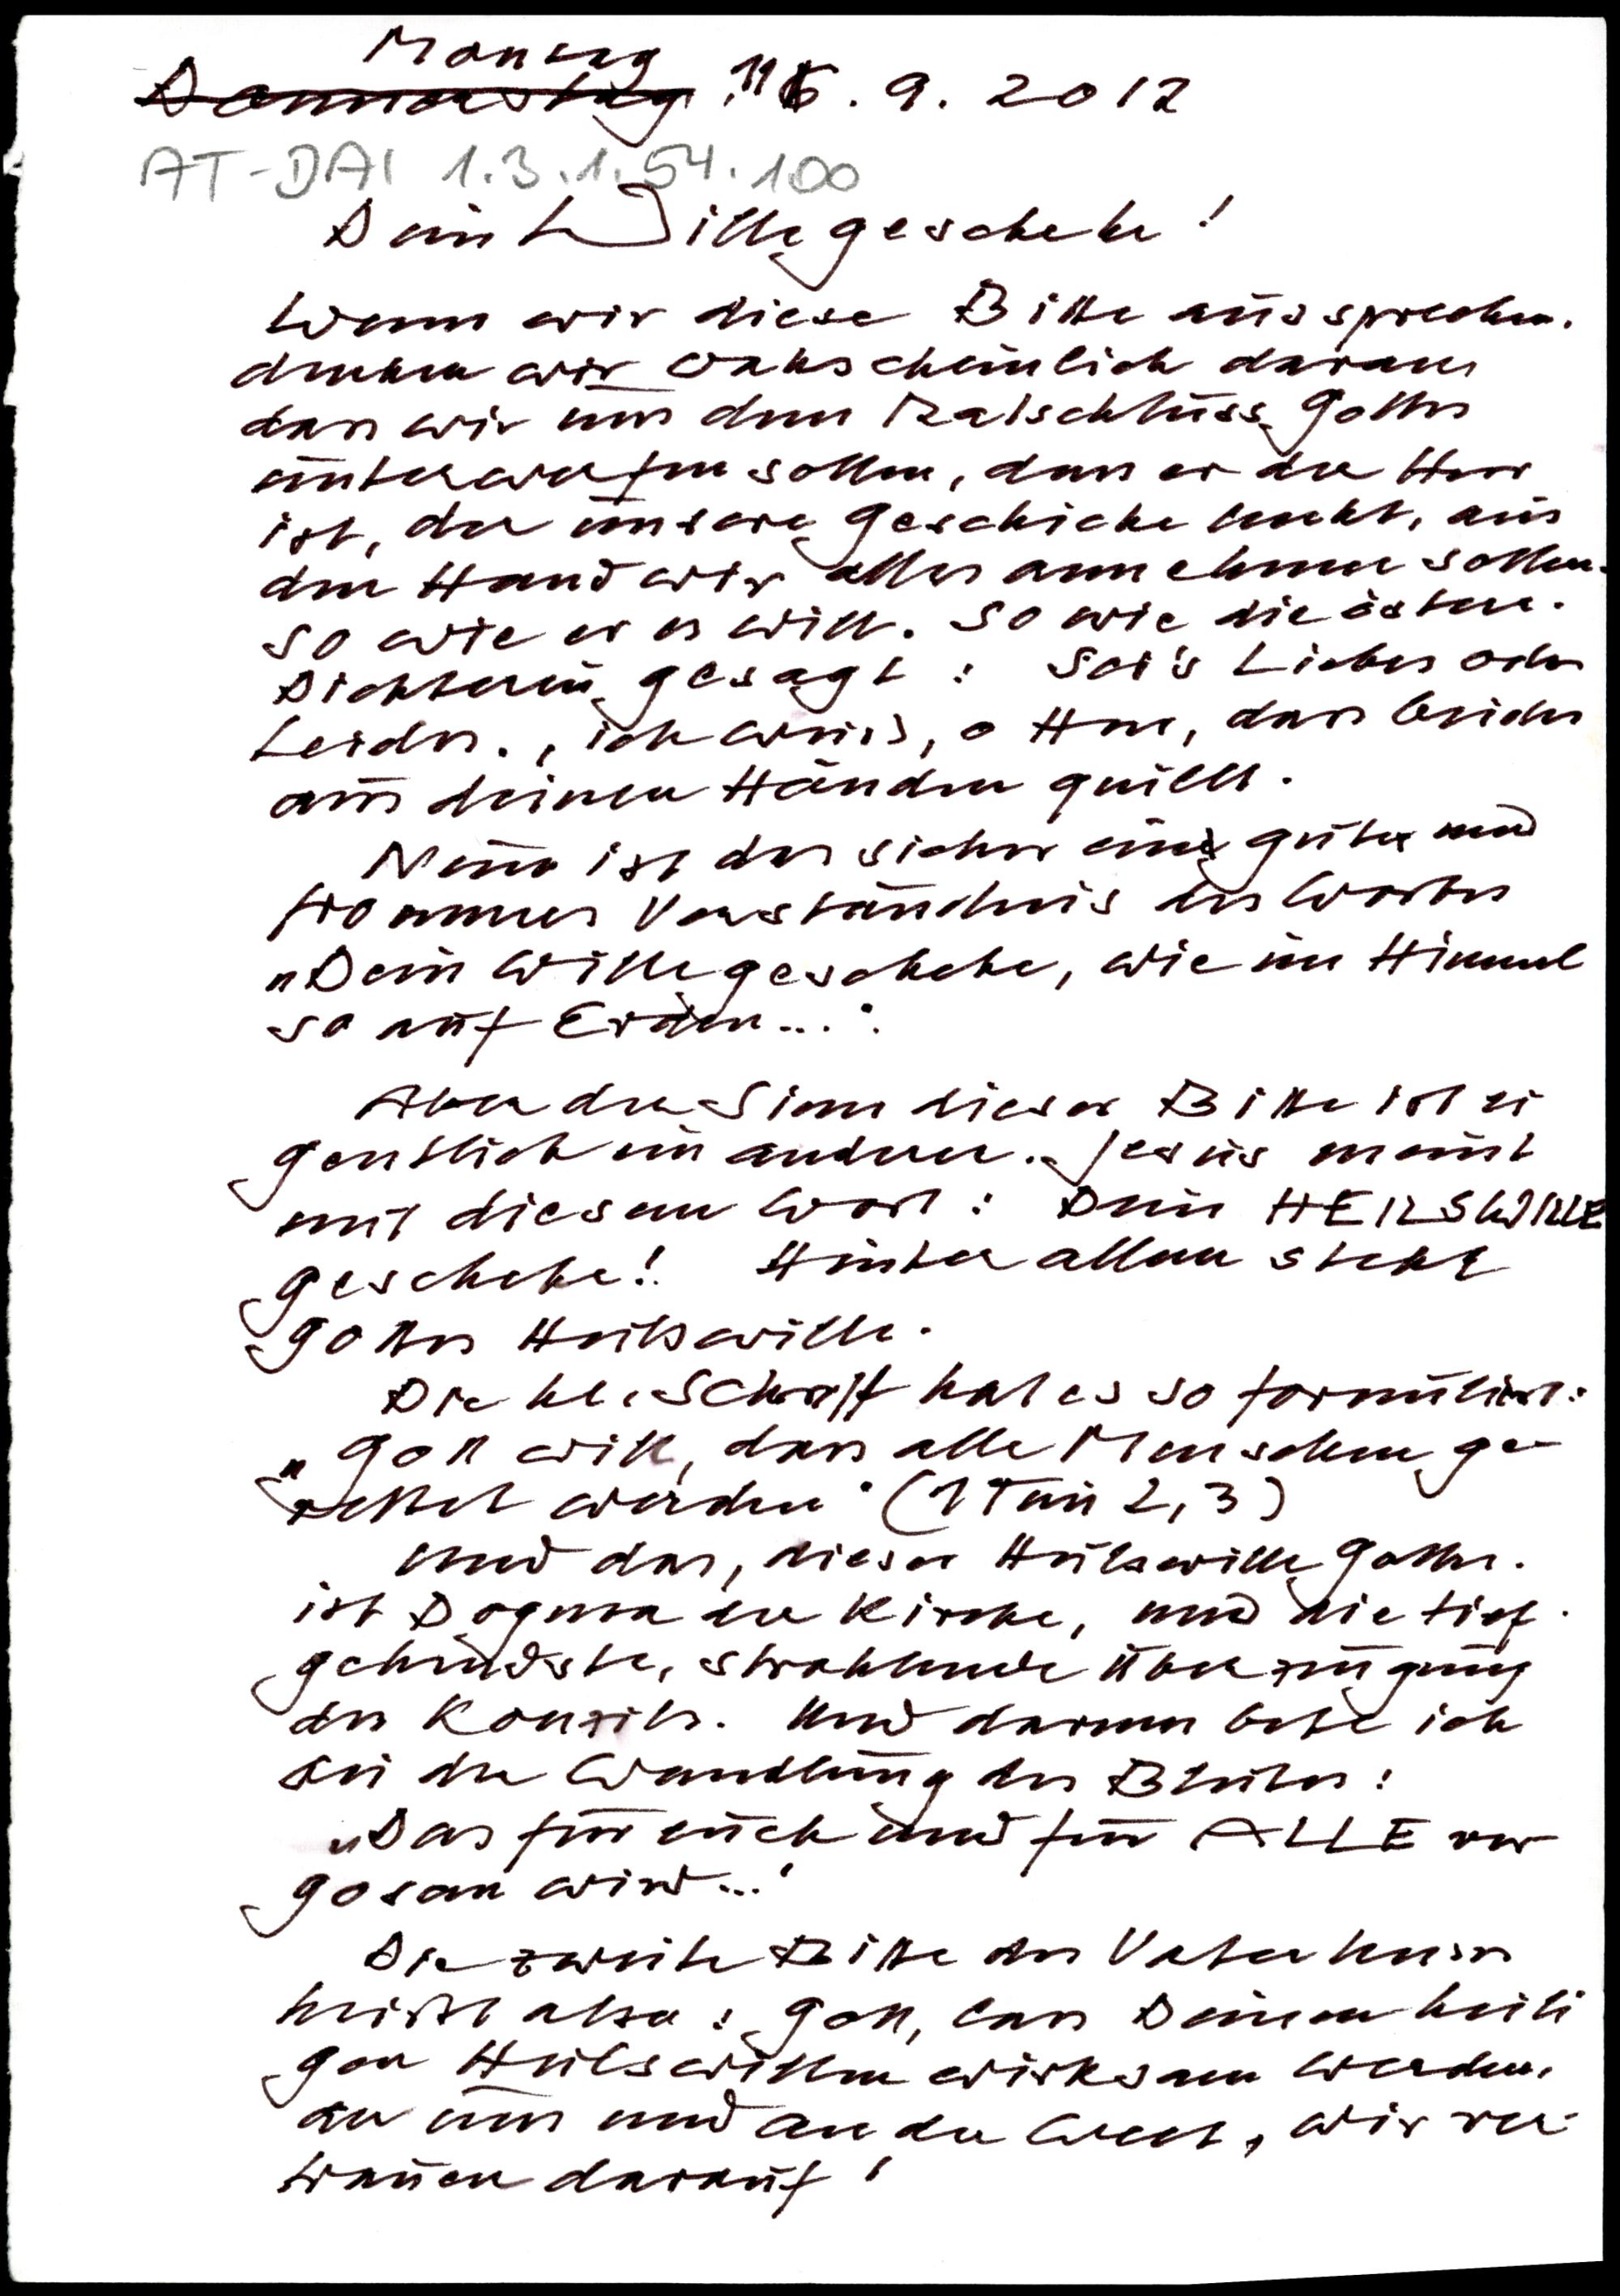 Montag
Donnerstag, 11.9.2012
AT-DAI 1.3.1.54.100
Dein Wille geschehe!
Wenn wir diese Bitte aussprechen,
denken wir wahscheinlich daran
dass wir uns dem Ratschluss Gottes
unterwerfen sollen, dass er der Herr
ist, der unsere Geschicke lenkt, aus
dem Hand wir alles annehmen sollen.
so wie er es will. So wie die österr.
Dichterin gesagt: Sei's Liebes oder
Leides., ich weiss, o Herr, dass beides
aus deinen Händen quillt.
Nun ist das sicher ein gutes und
frommes Verständnis des Wortes
„Dein Wille geschehe, wie im Himmel
so auf Erden...".
Aber der Sinn dieser Bitte ist ei
gentlich ein anderer. Jesus meint
mit diesem Wort: Dein HEILSWILLE
geschehe! Hinter allem steht
Gottes Heilswille.
Die hl. Schrift hat es so formuliert:
„Gott will, dass alle Menschen ge-
rettet werden" (1 Tim 2,3)
Und das, dieser Heilswille Gottes.
ist Dogma der Kirche, und die tief.
gehendste, strahlende Überzeugung
des Konzils. Und darum bete ich
bei der Wandlung des Blutes:
„Das für euch und für ALLE ver
gosen wird..."
Die zweite Bitte des Vaterunsers
heißt also: Gott, lass Deinen heili
gen Heilswillen wirksam werden,
an uns und an der Welt, wir ver-
trauen darauf!